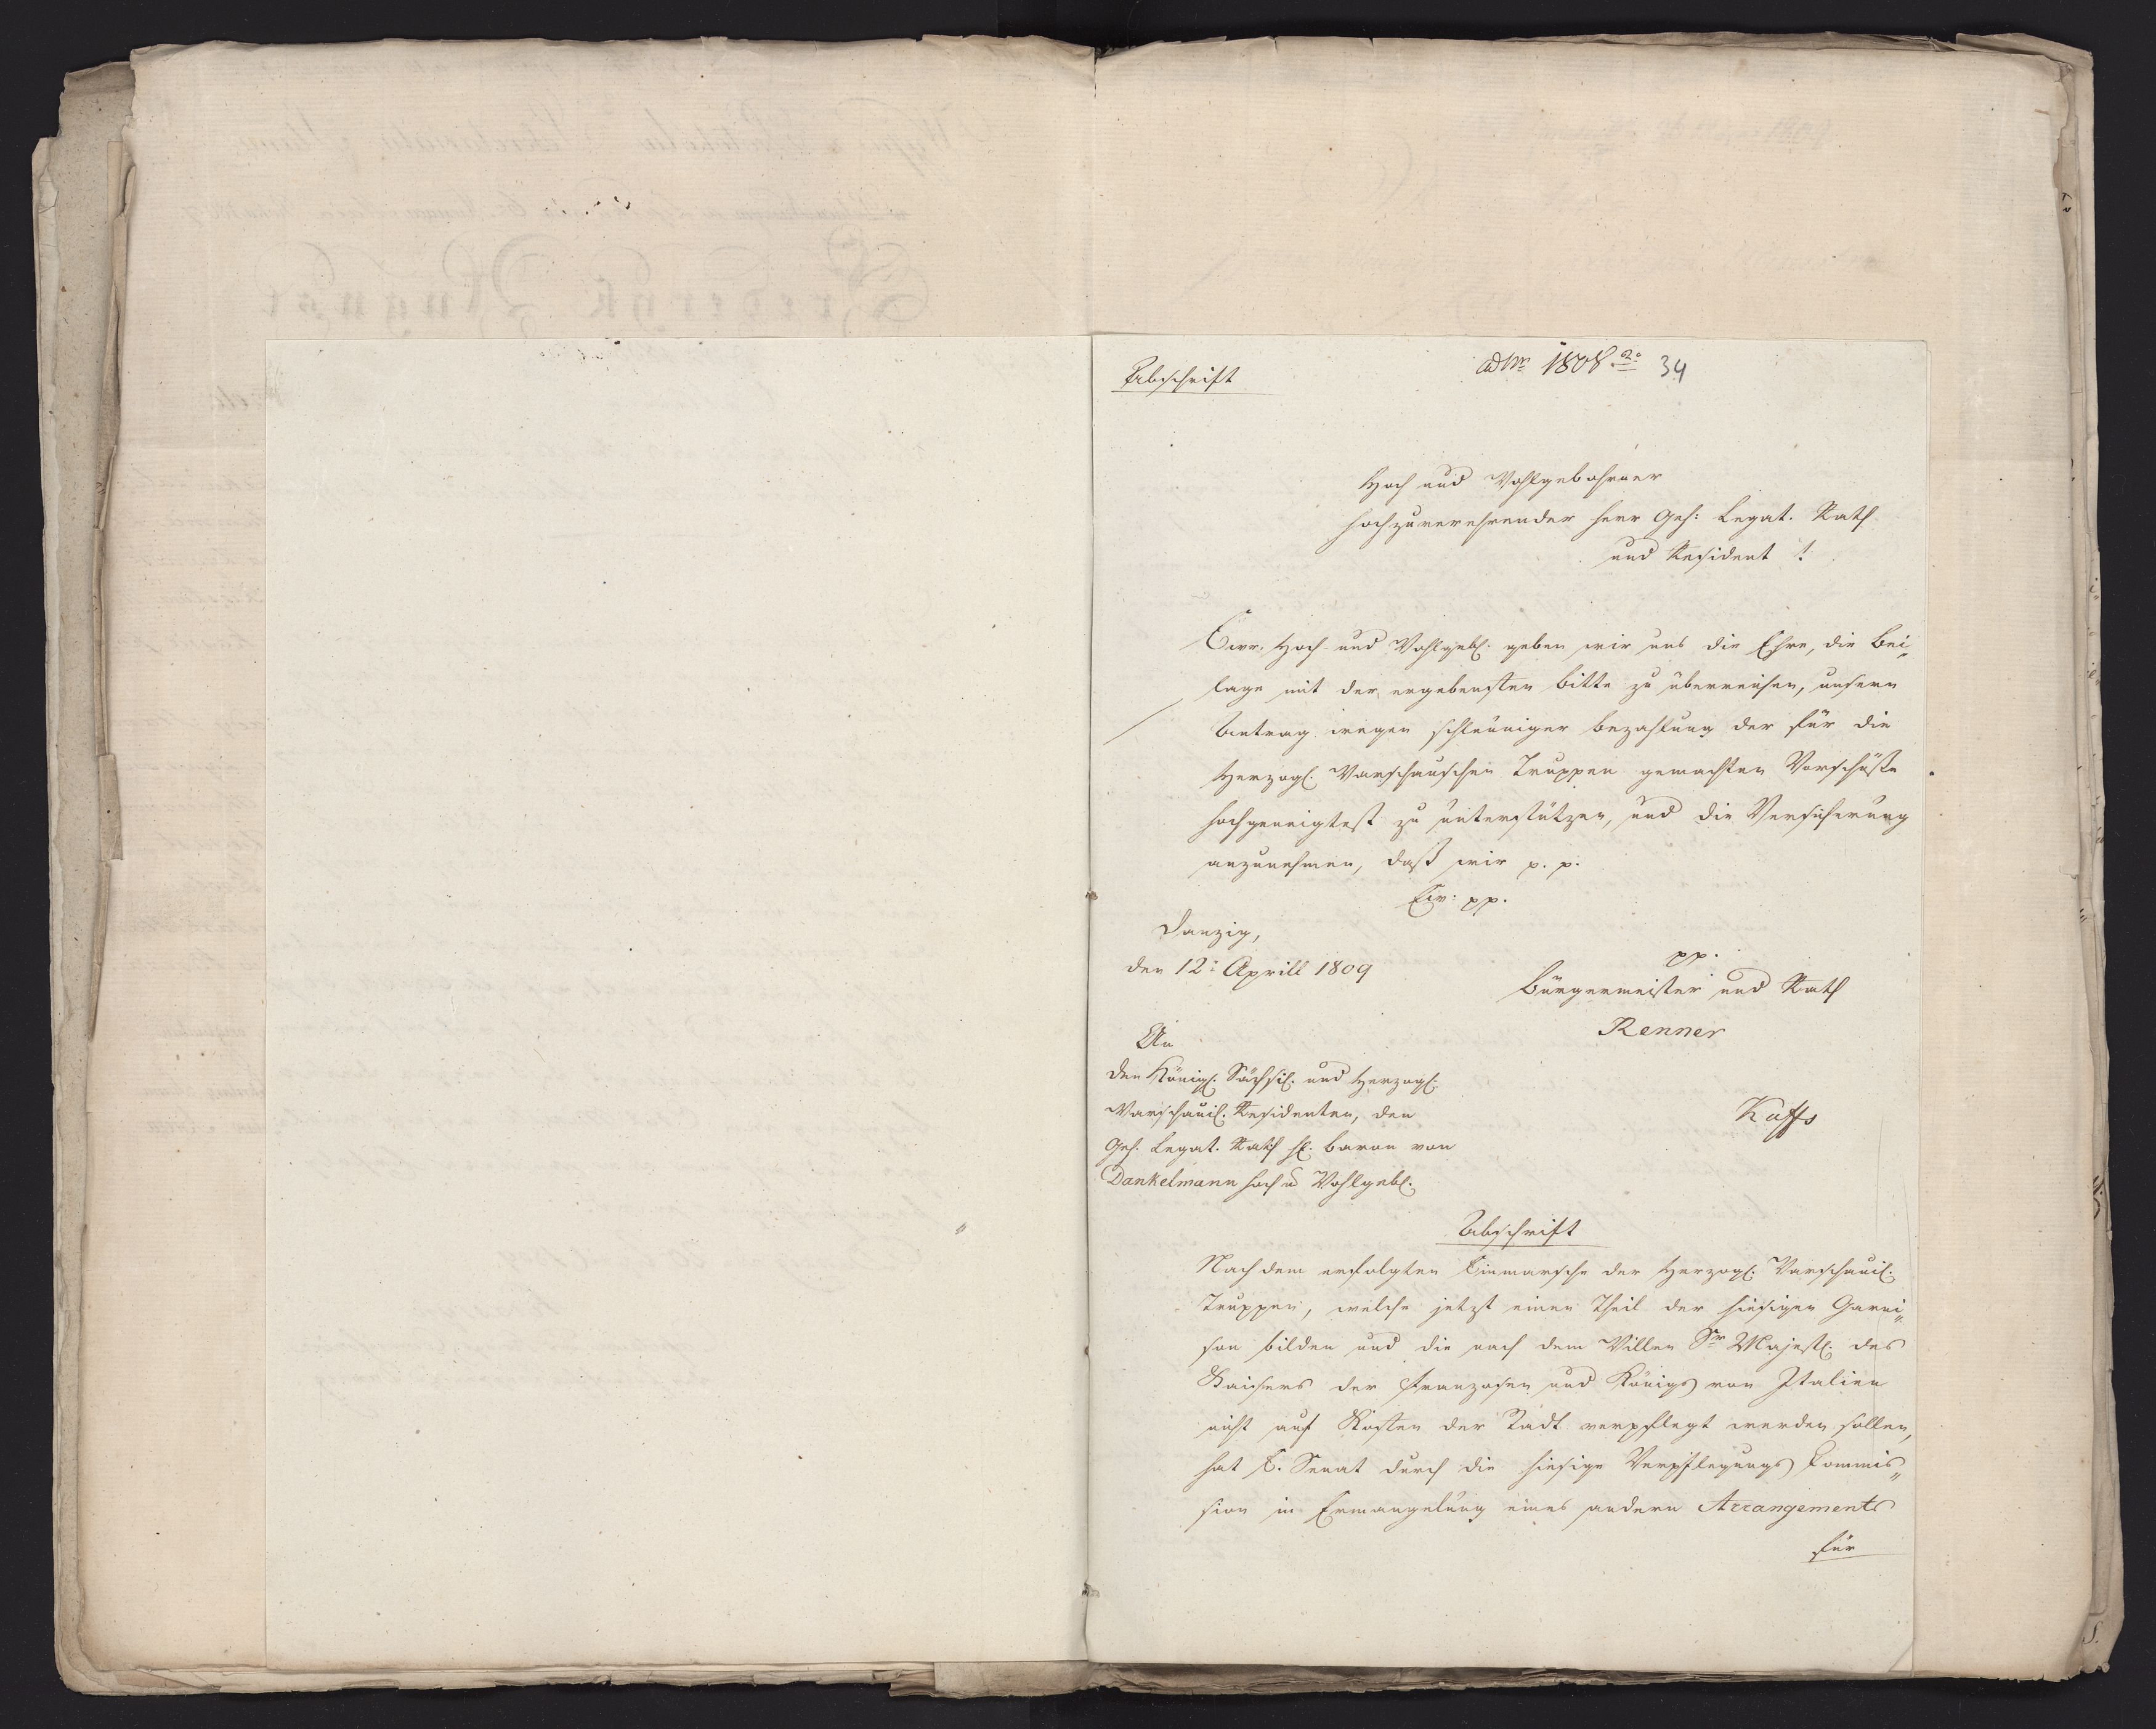 Abschrift
ad Nr 1808. 2o 34
Hoch und Wohlgebohrner
Hochzuverehrender Herr Geh: Legat. Rath
und Resident !
Ewr. Hoch- und Wohlgeb. geben wir uns die Ehre, die Bei„
lage mit der ergebensten Bitte zu überreichen, unsern
Antrag wegen schleuniger Bezahlung der für die
Herzogl. Warschauschen Truppen gemachten Vorschüße
hochgeneigtest zu unterstützen, und die Versicherung
anzunehmen, daß wir p. p.
Ew: pp.
Danzig,
den 12: Aprill 1809
pp.
Bürgermeister und Rath
Renner
An
den Königl. Sächsil. und Herzogl.
Warschauil. Residenten, den
Geh. Legat. Rath H. Baron von
Dankelmann Hoch u Wohlgeb.
Abschrift
Nach dem erfolgten Einmarsche der Herzogl. Warschauil.
Truppen, welche jetzt einen Theil der hiesigen Garni„
son bilden und die nach dem Willen Sr Majest. des
Kaisers der Franzosen und Königs von Italien
nicht auf Kosten der Stadt verpflegt werden sollen,
hat E. Senat durch die hiesige Verpflegungs Commis„
sion in Ermangelung eines andern Arrangements
für